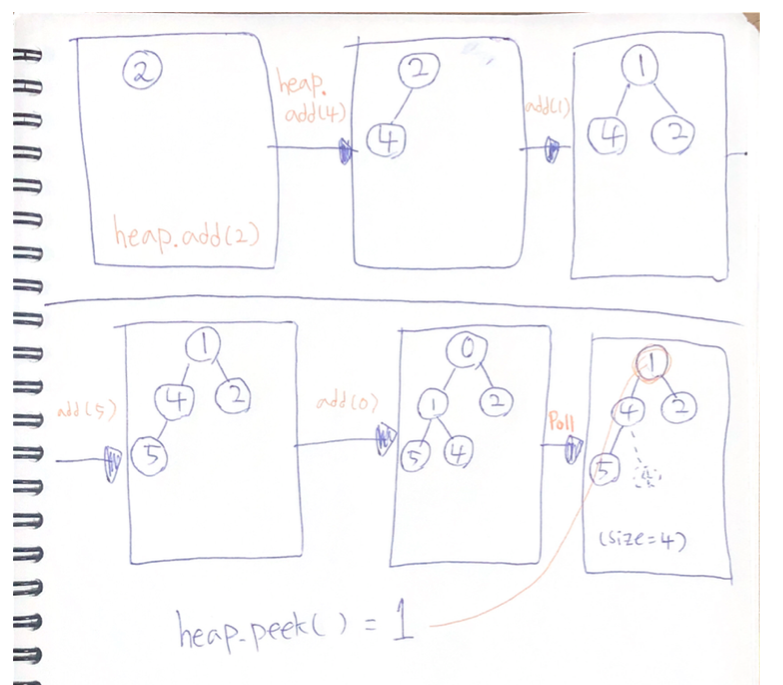 2
heap.add(2)
heap.
add(4)
2
4
add(1)
1
4 2
add(5)
1
4 2
5
add(0)
0
1 2
5 4
Poll
1
4 2
5
(size=4)
heap.peek() = 1